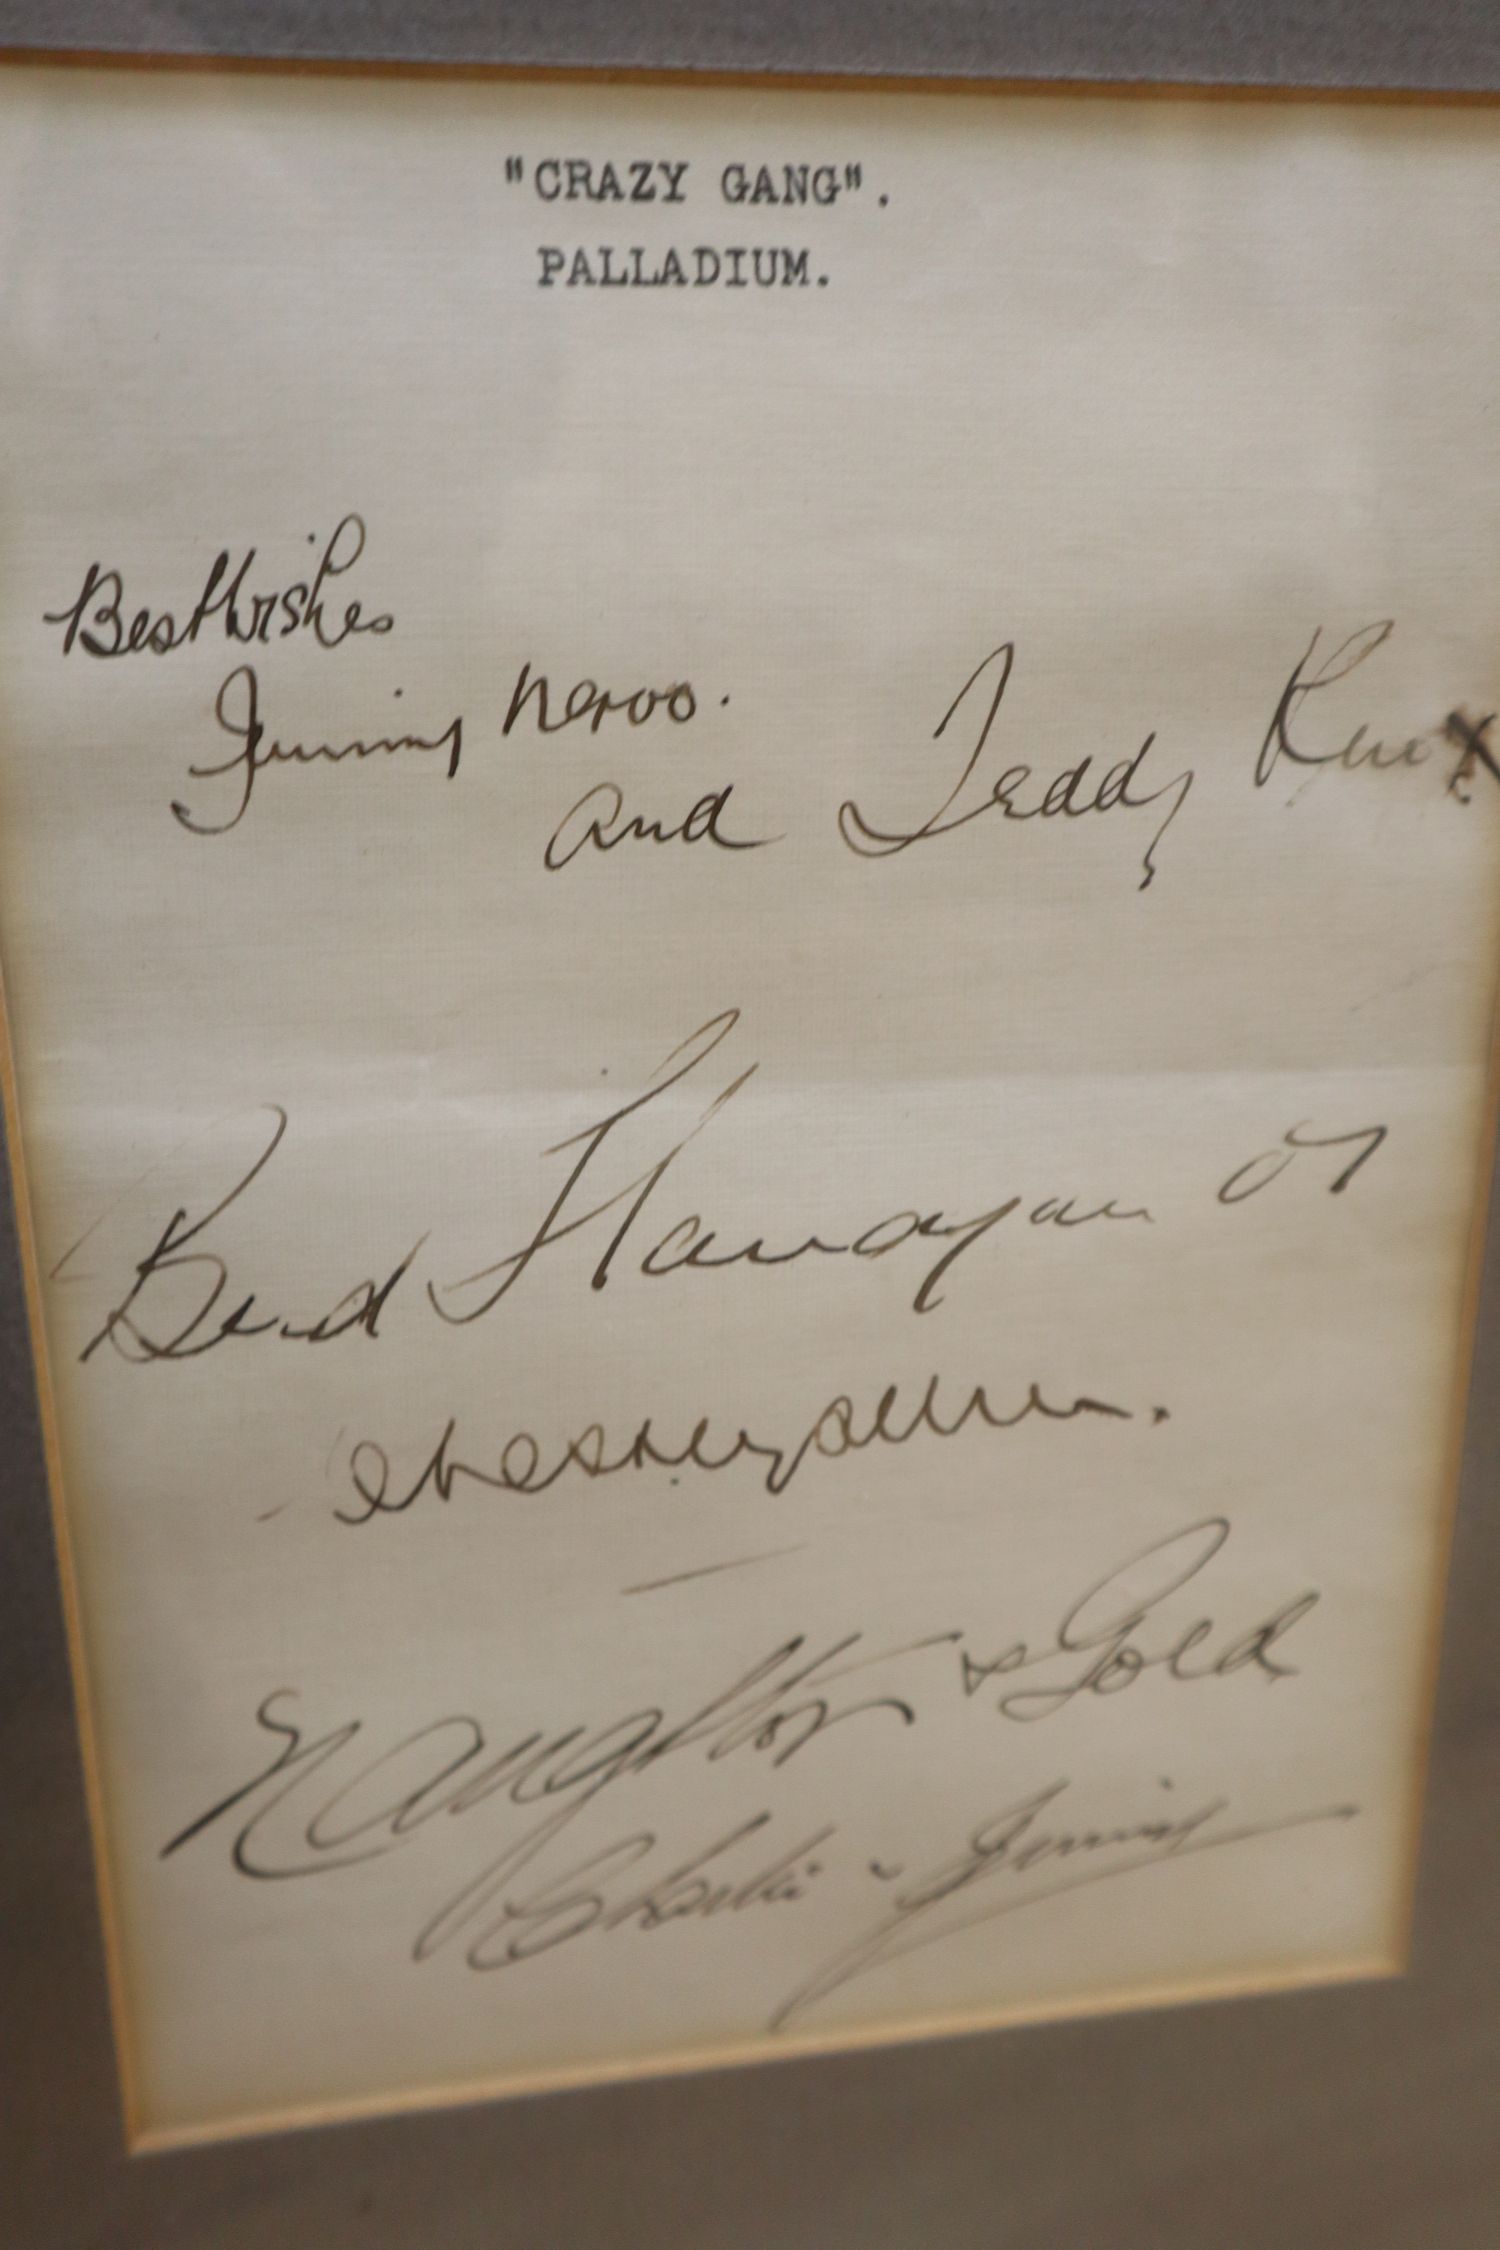 "CRAZY GANG".
PALLADIUM.
Best Wishes
Jimmy Nervo.
and Teddy Knox
Bud Flanagan or
Chesney Allen.
Naughton & Gold
Charlie & Jimmy